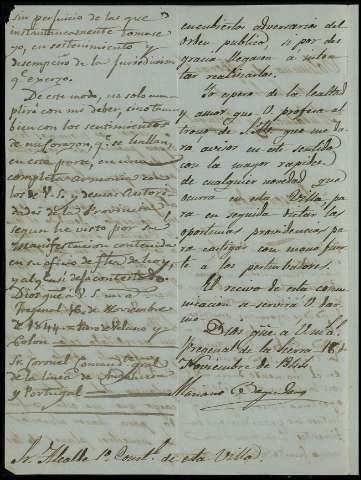 sin perjuicio de las que
instantaneamente tomase
yo, en sostenimiento y
desempeño de la jurisdicion
qe. exerzo.
De este modo, no solo cum
plire con mi deber, sino tam
bien con los sentimientos
de mi corazon, qe. se hallan,
en esta parte, en una
completa armonia con
los de V.S. y demas Autori
dades de la Provincia,
segun he visto por su
manifestacion contenida
en su oficio de fha de hoy,
y al qe. asi dejo contestado.
Dios gue. a V.S. ms. as.
Fregenal 16 de Noviembre
de 1844
Colon
Sr. Coronel Comandte. gral
de la linea de Andalucia
y Portugal
encubiertos adversarios del
orden publico, si por des
gracia llegaran a inten
tar realizarlos.
Yo espero de la lealtad
y amor que V. profesa al
trono de S.M. que me da
ra aviso en este sentido
con la mayor rapidez
de cualquier novedad que
ocurra en esta Villa, pa
ra en seguida dictar las
oportunas providencias pa
ra castigar con mano fuer
te a los perturbadores.
El recivo de esta comu
nicacion se servirá V. dar
me.
Dios gue. a V. ms. as.
Fregenal de la Sierra 18 de
Noviembre de 1844
Mariano
Sr. Alcalde 1o. Constl. de esta Villa.